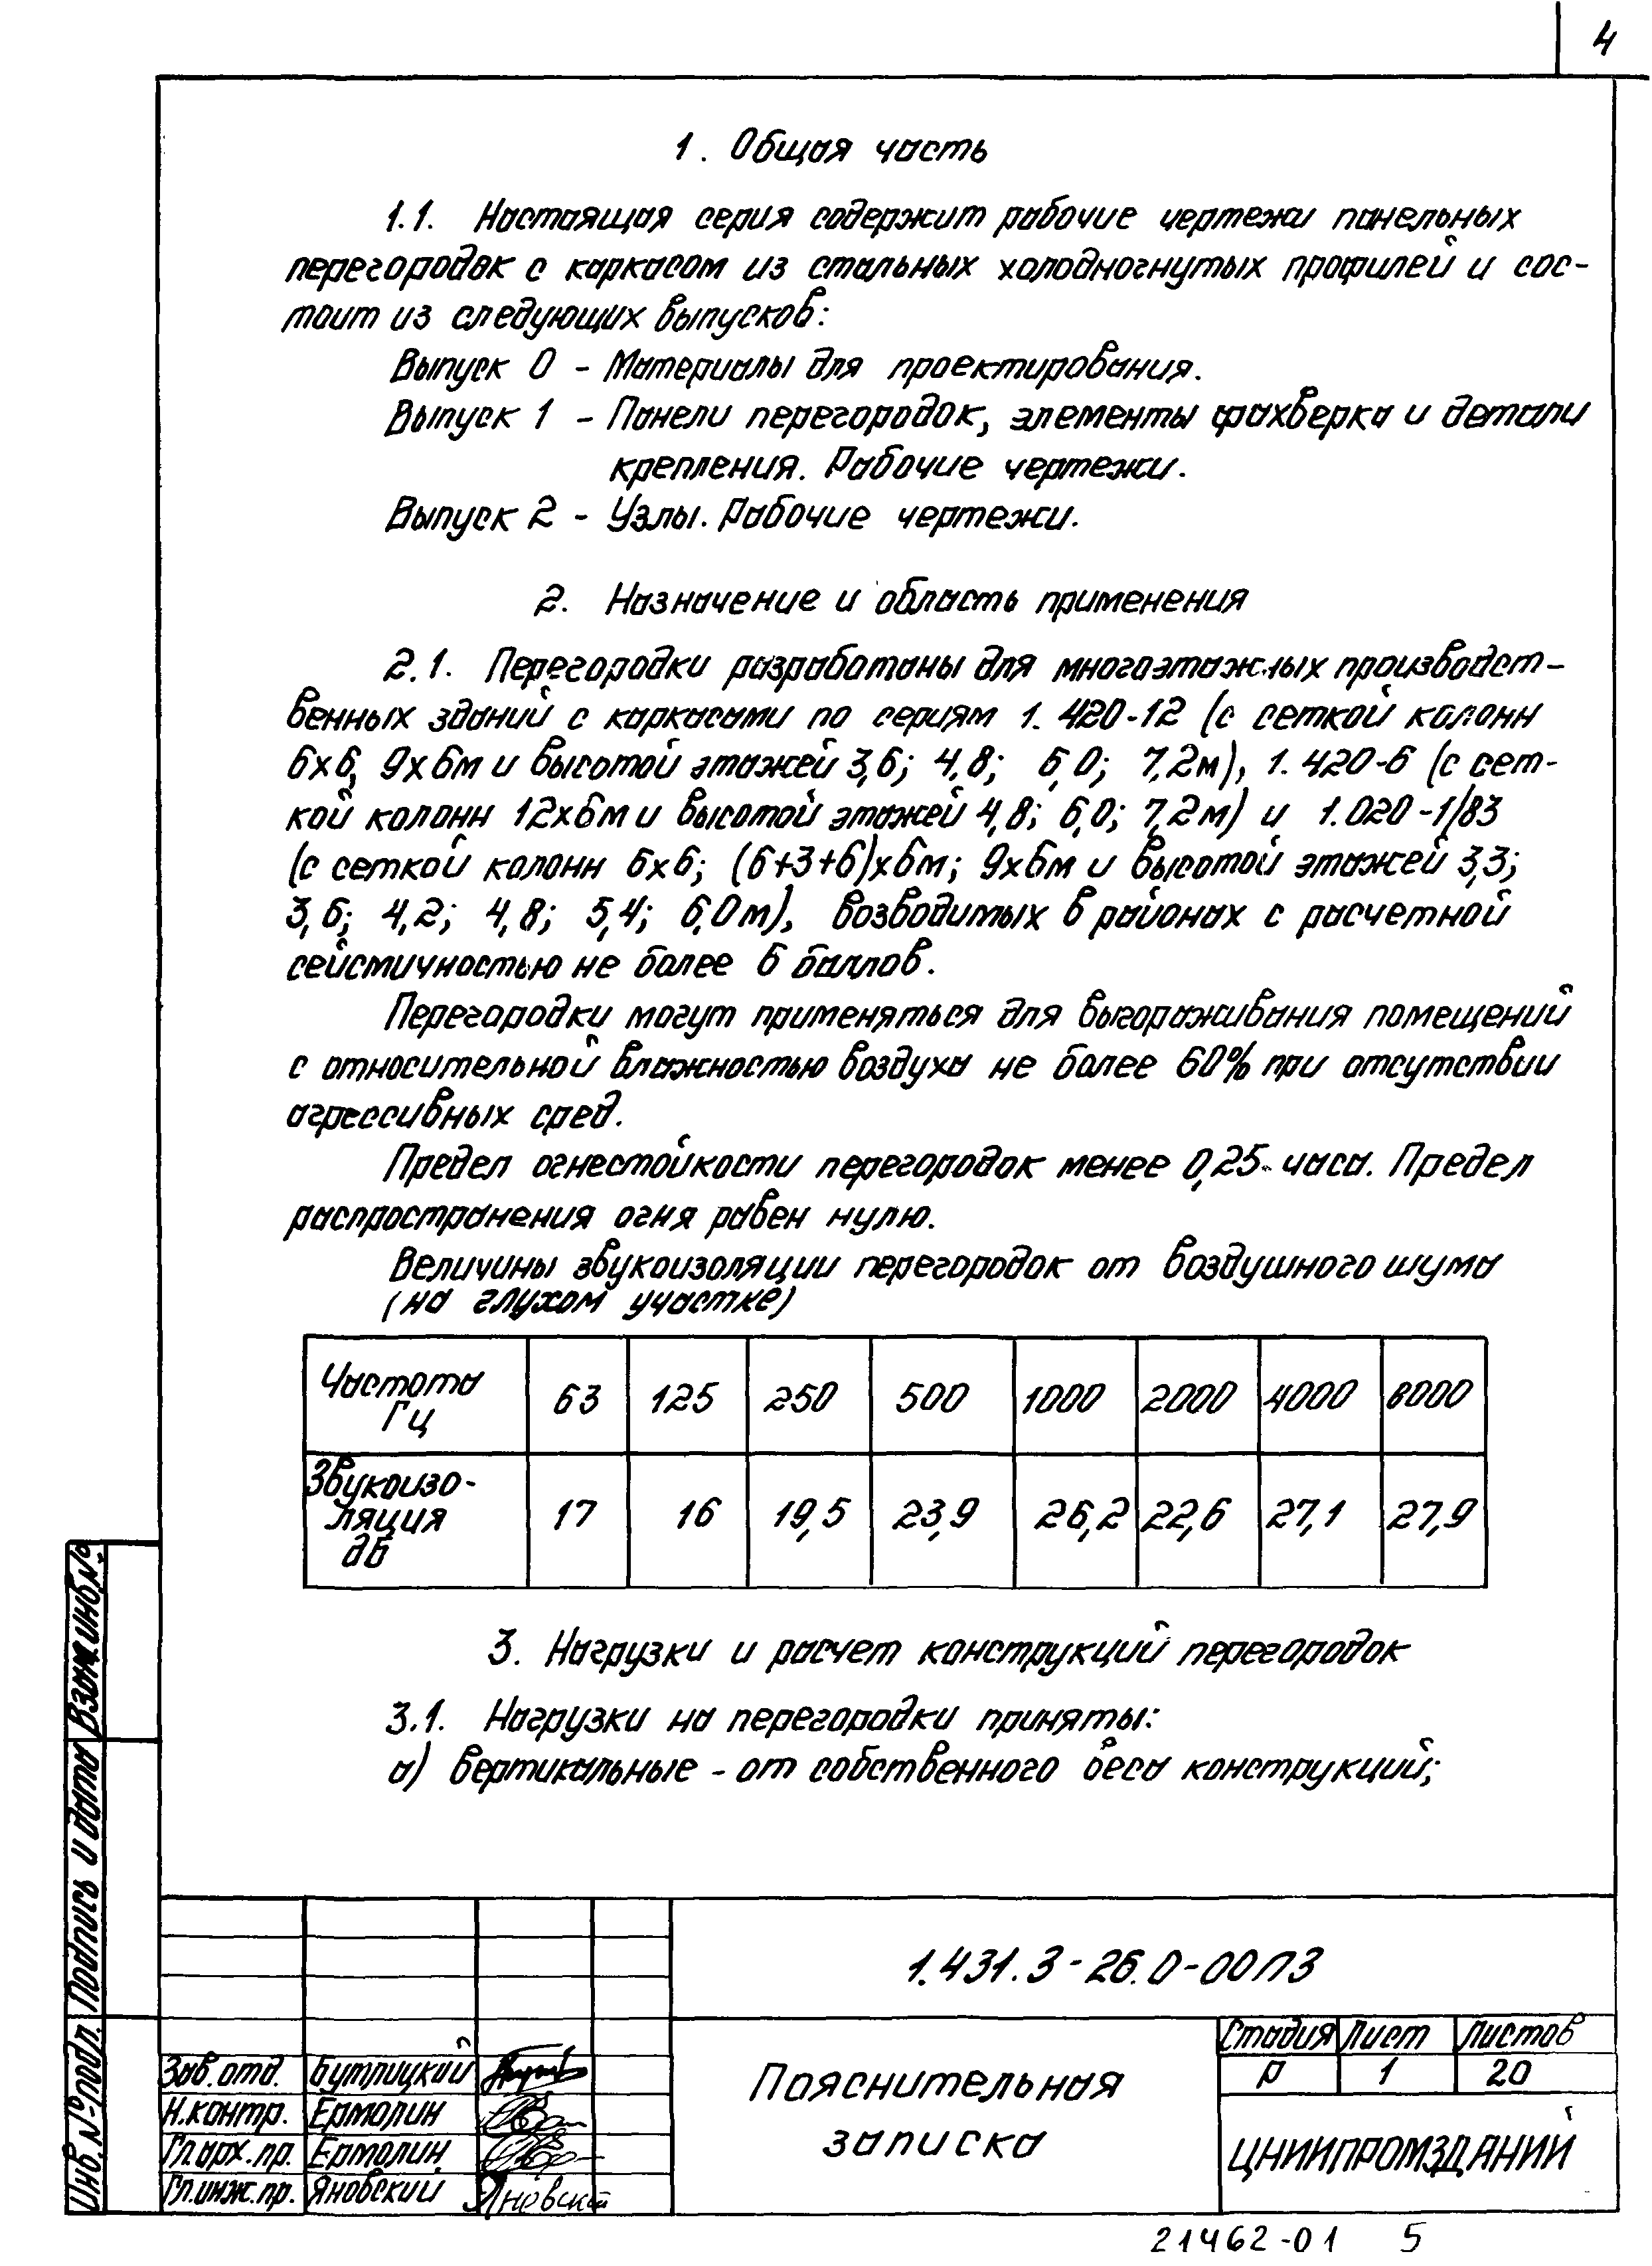 4
1. Общая часть
1.1. Настоящая серия содержит рабочие чертежи панельных
перегородок с каркасом из стальных холодногнутых профилей и сос-
тоит из следующих выпусков:
Выпуск 0 - Материалы для проектирования.
Выпуск 1 - Панели перегородок, элементы фахверка и детали
крепления. Рабочие чертежи.
Выпуск 2 - Узлы. Рабочие чертежи.
2. Назначение и область применения
2.1. Перегородки разработаны для многоэтажных производст-
венных зданий с каркасами по сериям 1.420-12 (с сеткой колонн
6х6, 9х6м и высотой этажей 3,6; 4,8; 6,0; 7,2м), 1.420-6 (с сет-
кой колонн 12х6м и высотой этажей 4,8; 6,0; 7,2м) и 1.020-1/83
(с сеткой колонн 6х6; (6+3+6)х6м; 9х6м и высотой этажей 3,3;
3,6; 4,2; 4,8; 5,4; 6,0м), возводимых в районах с расчетной
сейсмичностью не более 6 баллов.
Перегородки могут применяться для выгораживания помещений
с относительной влажностью воздуха не более 60% при отсутствии
агрессивных сред.
Предел огнестойкости перегородок менее 0,25 часа. Предел
распространения огня равен нулю.
Величины звукоизоляции перегородок от воздушного шума
(на глухом участке)
Частота Гц 63 125 250 500 1000 2000 4000 8000
Звукоизо-
ляция дБ 17 16 19,5 23,9 26,2 22,6 27,1 27,9
3. Нагрузки и расчет конструкций перегородок
3.1. Нагрузки на перегородки приняты:
а) вертикальные - от собственного веса конструкций;
Взам. инв. №
Подпись и дата
Инв. № подл.
1.431.3-26.0-00ПЗ
Зав. отд. Бутлицкий
Н. контр. Ермолин
Гл. арх. пр. Ермолин
Гл. инж. пр. Яновский
Пояснительная
записка
Стадия Лист Листов
Р 1 20
ЦНИИПРОМЗДАНИЙ
21462-01 5